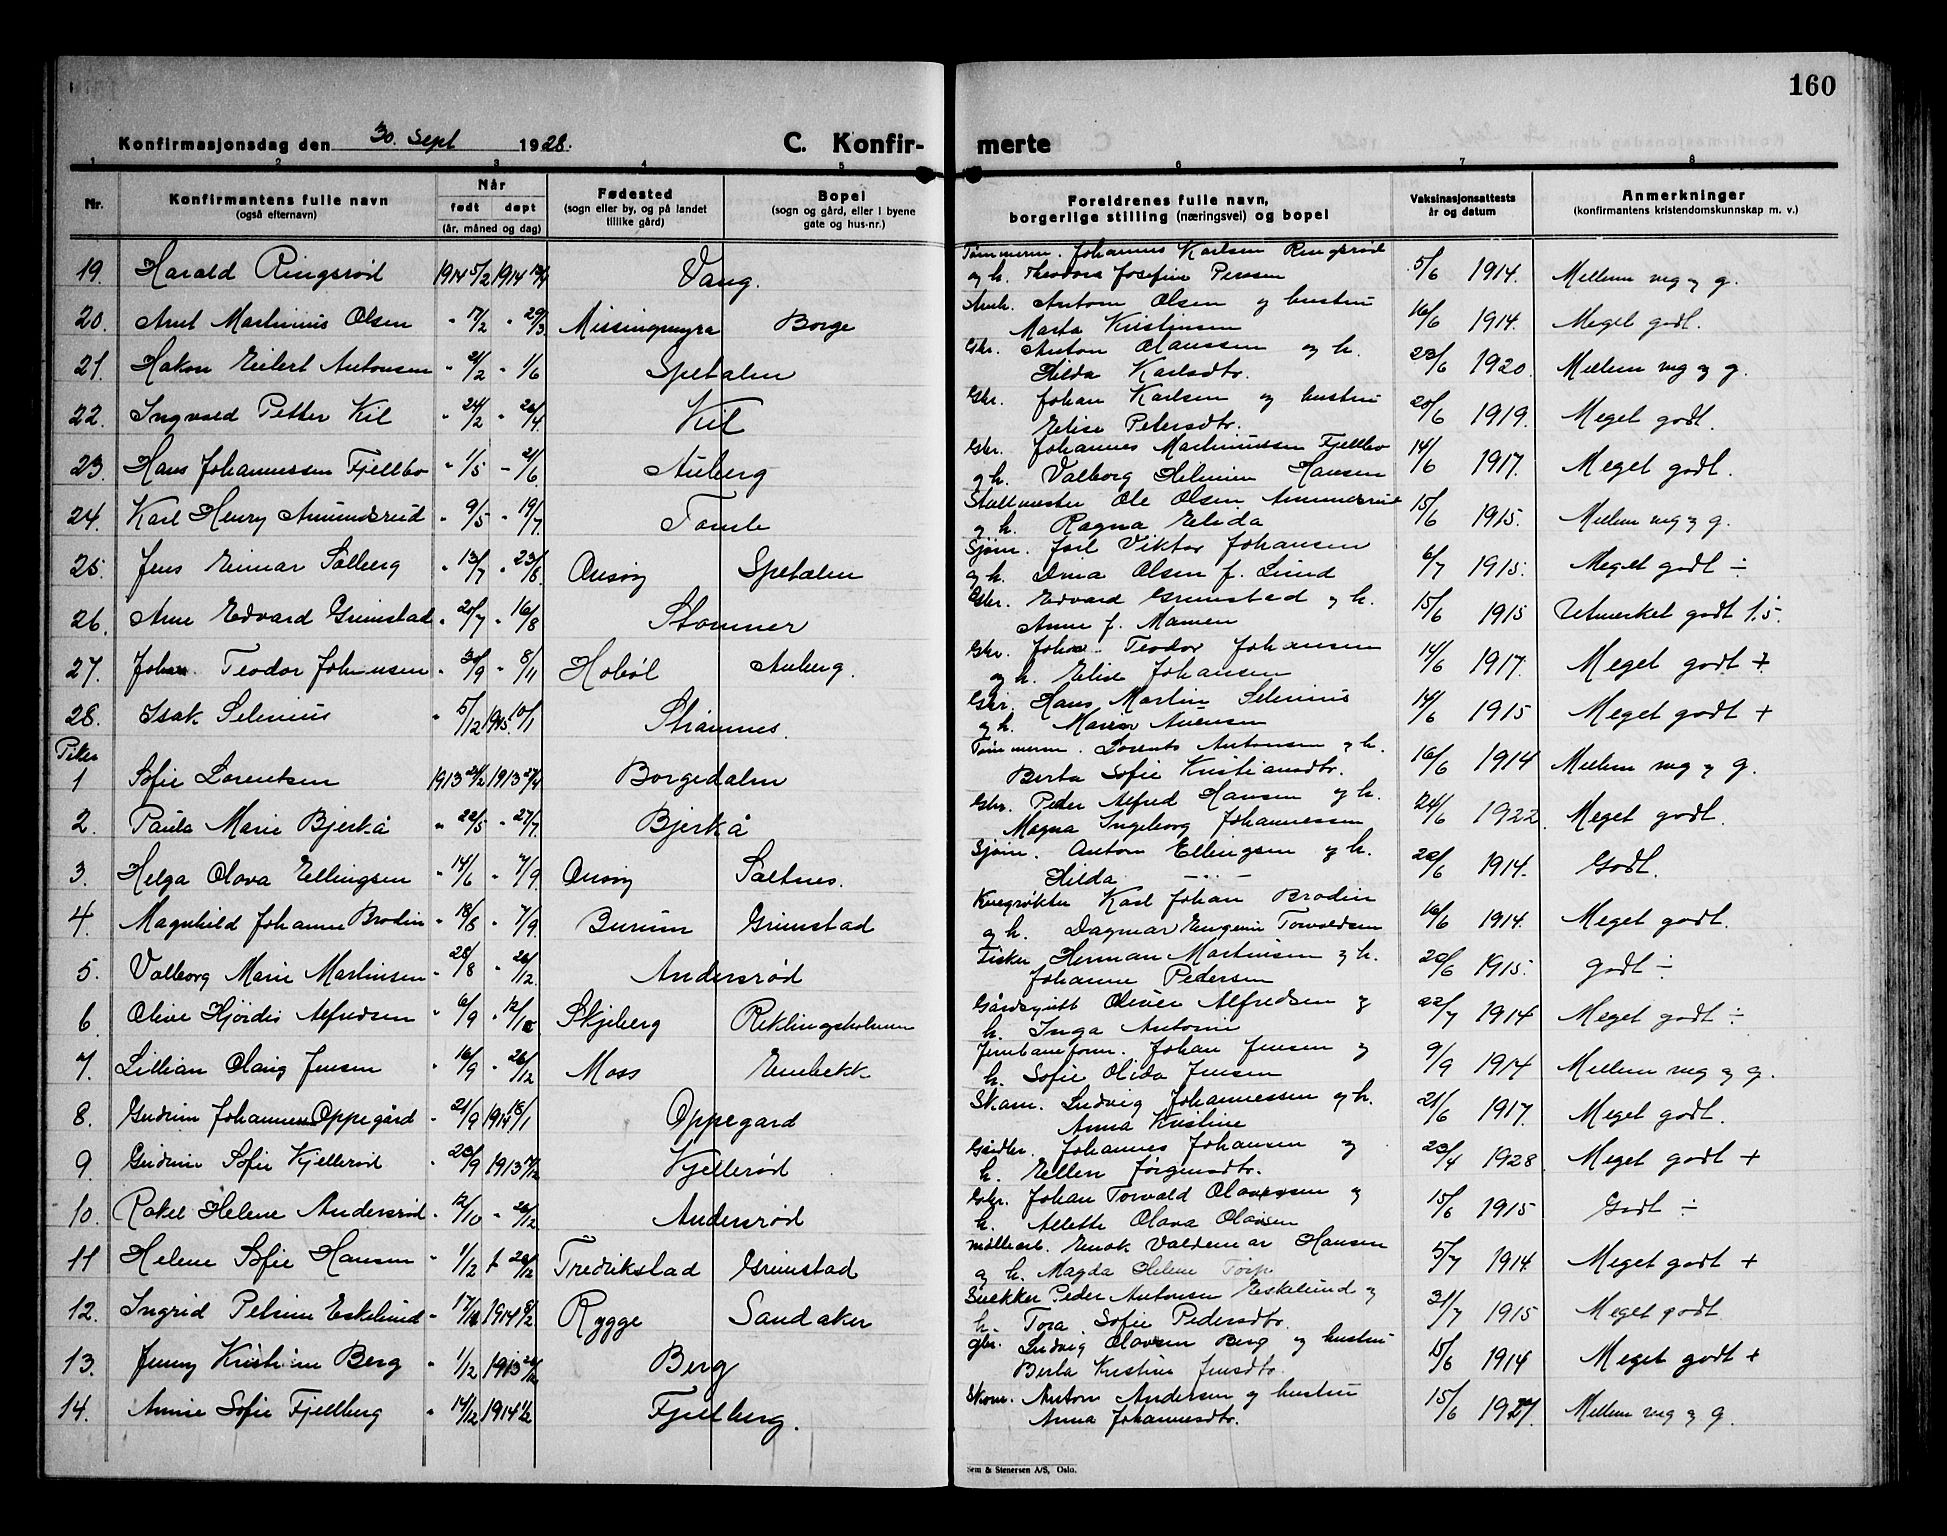 160
Konfirmasjonsdag den 30. Sept 1928.
C. Konfir-
merte
1 2 3 4 5 6 7 8
Nr. Konfirmantens fulle navn (også efternavn) Når født døpt (år, måned og dag) Fødested (sogn eller by, og på landet tillike gård) Bopel (sogn og gård, eller i byene gate og hus-nr.) Foreldrenes fulle navn, borgerlige stilling (næringsvei) og bopel Vaksinasjonsattests år og datum Anmerkninger (konfirmantens kristendomskunnskap m. v.)
19. Harald Ringsrød 1914 5/2 1914 Vang. Tømmerm. Johannes Karlsen Ringsrød
og h. Theodora Josefine Persen 5/6 1914. Mellem mg og g.
20. Arnt Martinius Olsen " 17/2 " 29/3 Missingmyra Borge Arb. Anton Olsen og hustru
Marta Kristinsen 16/6 1914. Meget godt.
21. Håkon Eilert Antonsen " 21/2 " 1/6 Spetalen Gbr. Anton Olaussen og h.
Hilda Karlsdtr. 23/6 1920. Mellem mg og g.
22. Ingvald Petter Kil " 24/2 " 26/4 Kil Gbr. Johan Karlsen og hustru
Elise Petersdtr. 20/6 1919. Meget godt.
23. Hans Johannessen Fjellbo " 1/5 " 21/6 Auberg Gbr. Johannes Martinussen Fjellbo
og h. Valborg Helmine Hansen 14/6 1917. Meget godt.
24. Karl Henry Amundsrud " 9/5 " 19/7 Tomb Stallmester Ole Olsen Ammersrud
og h. Ragna Elida 15/6 1915. Mellem mg og g.
25. Jens Einar Solberg " 13/7 " 23/8 Onsøy Spetalen Sjøm. Joel Viktor Johansen
og h. Dina Olsen f. Lund 6/7 1915. Meget godt ÷
26. Arne Edvard Grimstad " 20/7 " 16/8 Stomner Gbr. Edvard Grimstad og h.
Anne f. Mamen 15/6 1915 Utmerket godt 1.5.
27. Johan Teodor Johansen " 30/9 " 8/11 Hobøl Auberg. Gbr. Johan Teodor Johansen
og h. Elise Johansen 14/6 1917. Meget godt +
28. Isak Selenius " 5/12 1915 10/1 Strømnes. Gbr. Hans Martin Selenius
og h. Maren Arensen 14/6 1915 Meget godt +
Piker
1 Sofie Lorentsen 1913 21/2 1913 27/4 Borgedalen Tømmerm. Lorents Antonsen og h.
Berta Sofie Kristiansdtr. 16/6 1914 Mellem mg og g.
2. Paula Marie Bjerkå " 22/5 " 27/7 Bjerkå Gbr. Peder Alfred Hansen og h.
Magna Ingeborg Johannessen 24/6 1922. Meget godt.
3. Helga Olava Ellingsen " 14/6 " 7/9 Onsøy Saltnes. Sjøm. Anton Ellingsen og h.
Hilda — " — 20/6 1914. Godt.
4. Magnhild Johanne Brodin " 18/8 " 7/9. Burum Grimstad Kuerøkter Karl Johan Brodin
og h. Dagmar Eugenie Torvaldsen 16/6 1914. Meget godt.
5. Valborg Marie Martinsen " 28/8 " 26/12. Andersrød Fisker Herman Martinsen og h.
Johanne Pedersen 20/6 1915. Godt ÷
6. Olive Hjørdis Alfredsen " 6/9 " 12/10 Skjeberg Reklingsholmen Gårdsgutt Oliver Alfredsen og
h. Inga Antonie 22/7 1914 Meget godt ÷
7. Lillian Olaug Jensen " 16/9 " 26/12 Moss Enebekk Jernbaneform. Johan Jensen og
h. Sofie Olida Jensen 9/9 1914 Mellem mg og g.
8. Gudrun Johannessen Oppegård " 21/9 1914 18/1 Oppegard Skom. Ludvig Johannessen og h.
Anna Kristine 21/6 1917. Meget godt.
9. Gudrun Sofie Kjellerød " 23/9 1913 Kjellerød Johannes Johansen og
h. Ellen Jørgensdtr. 23/4 1928. Meget godt +
10. Rakel Helene Andersrød " 12/10 " 26/12 Andersrød Gbr. Johan Torvald Olavesen og
h. Allette Olava Olavsen 15/6 1915 Godt ÷
11 Helene Sofie Hansen " 1/12 " 28/12 Fredrikstad Grimstad Møllearb. Enok Valdemar Hansen
og h. Magda Helene Torp 5/7 1914 Meget godt +
12. Ingrid Petrine Eskelund " 17/11 1914 8/2 Rygge Sandaker Snekker Peder Antonsen Eskelund og
h. Tora Sofie Pedersdtr. 31/7 1915 Meget godt
13. Jenny Kristine Berg " 1/12 1913 26/12 Berg Gbr. Ludvig Olavsen Berg og hustru
Berta Kristine Jensdtr. 15/6 1914 Meget godt +
14. Annie Sofie Fjellberg " 14/12 1914 1/2 Fjellberg. Skom. Anton Andersen og hustru
Anna Johannesdtr. 15/6 1927. Mellem mg og g.
Sem & Stenersen A/S, Oslo.